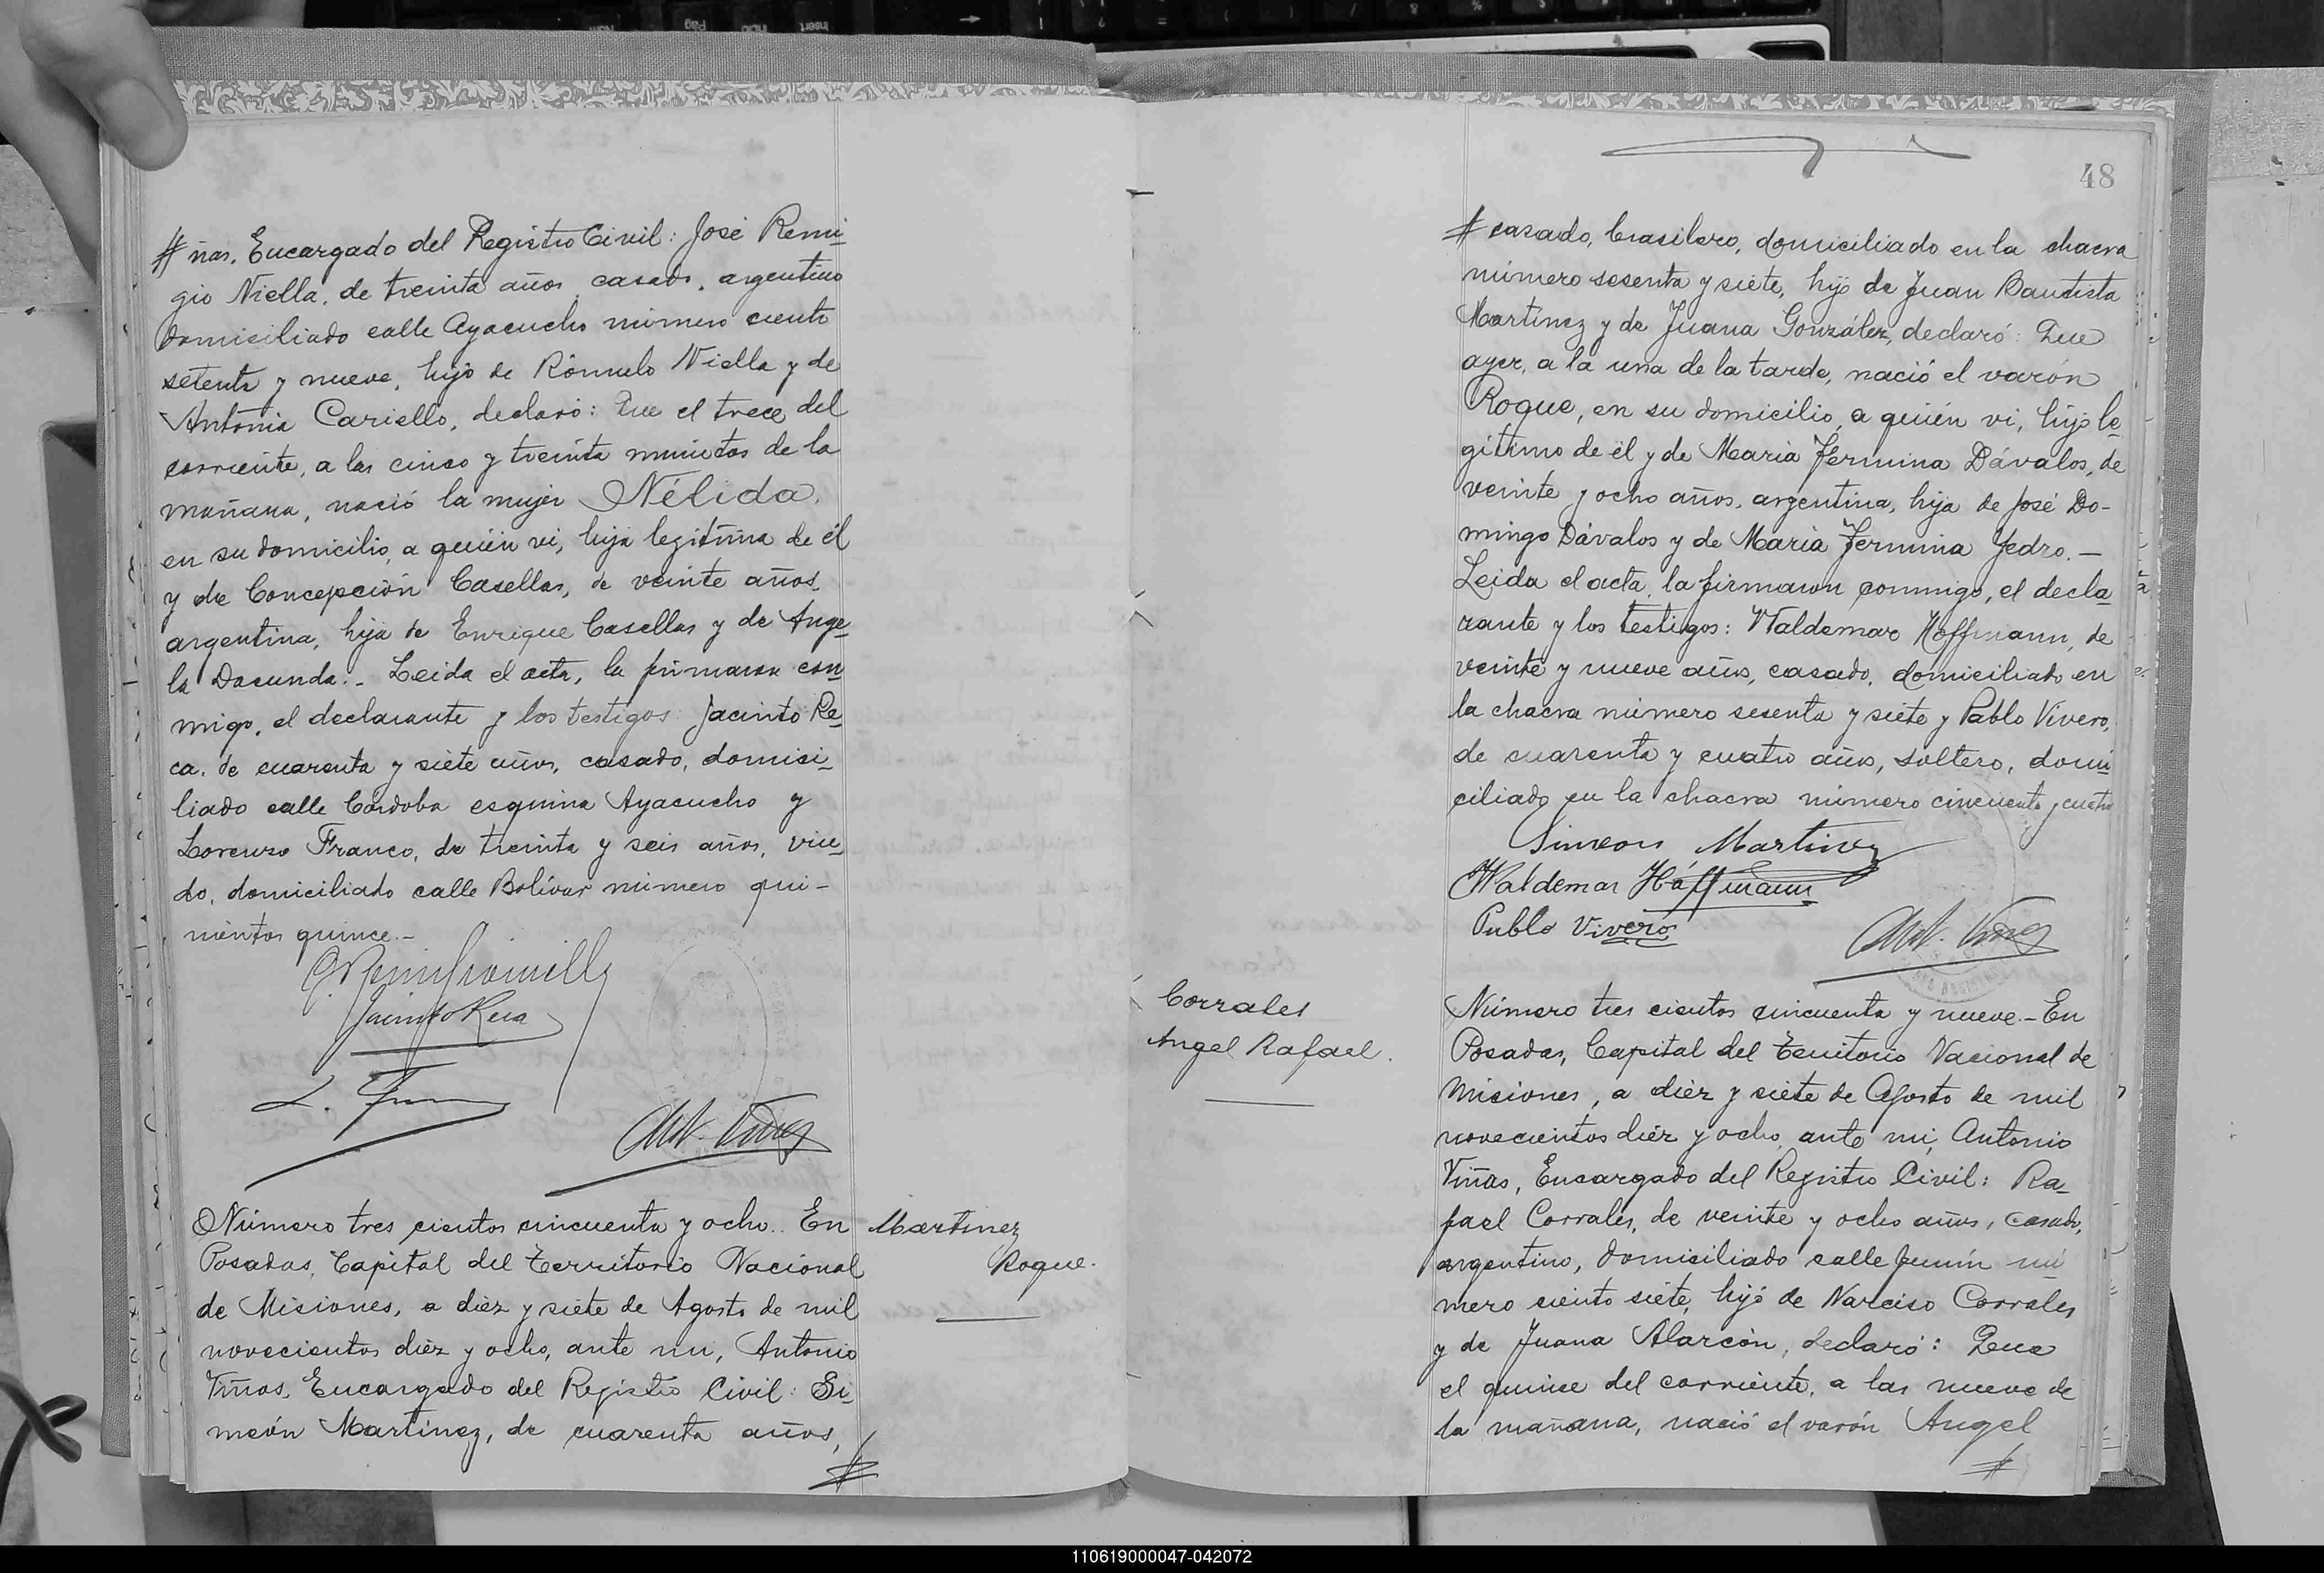 # ñas, Encargado del Registro Civil: José Remi
gio Niella, de treinta años, casado, argentino
domiciliado calle Ayacucho número ciento
setenta y nueve, hijo de Rómulo Niella y de
Antonia Cariello, declaró: Que el trece del
corriente, a las cinco y treinta minutos de la
mañana, nació la mujer Nélida,
en su domicilio, a quién vi, hija legítima de él
y de Concepción Casellas, de veinte años,
argentina, hija de Enrique Casellas y de Ange
la Dacunda.- Leida el acta, la firmaron con
migo, el declarante y los testigos: Jacinto Re
ca, de cuarenta y siete años, casado, domici
liado calle Córdoba esquina Ayacucho y
Lorenzo Franco, de treinta y seis años, viu
do, domiciliado calle Bolívar número qui-
nientos quince.-
Jacinto Reca
Número tres cientos cincuenta y ocho.. En
Posadas, Capital del Territorio Nacional
de Misiones, a diéz y siete de Agosto de mil
novecientos diéz y ocho, ante mi, Antonio
Viñas, Encargado del Registro Civil: Si
meón Martínez, de cuarenta años,
#
Martinez
Roque.
48
# casado, brasilero, domiciliado en la chacra
número sesenta y siete, hijo de Juan Bautista
Martínez y de Juana González, declaró: Que
ayer, a la una de la tarde, nació el varón
Roque, en su domicilio, a quién vi, hijo le
gítimo de él y de María Fermina Dávalos, de
veinte y ocho años, argentina, hija de José Do-
mingo Dávalos y de María Fermina Jedro.-
Leida el acta, la firmaron conmigo, el decla
rante y los testigos: Waldemar Hoffmann, de
veinte y nueve años, casado, domiciliado en
la chacra número sesenta y siete y Pablo Vivero,
de cuarenta y cuatro años, soltero, domi
ciliado en la chacra número cincuenta y cuatro
Simeon Martinez
Waldemar Hoffmann
Pablo Vivero
Ant. Viñas
Corrales
Angel Rafael.
Número tres cientos cincuenta y nueve.- En
Posadas, Capital del Territorio Nacional de
Misiones, a diéz y siete de Agosto de mil
novecientos diéz y ocho, ante mi, Antonio
Viñas, Encargado del Registro Civil: Ra
fael Corrales, de veinte y ocho años, casado,
argentino, domiciliado calle Junín nú
mero ciento siete, hijo de Narciso Corrales
y de Juana Alarcón, declaró: Que
el quince del corriente, a las nueve de
la mañana, nació el varón Angel
#
110619000047-042072